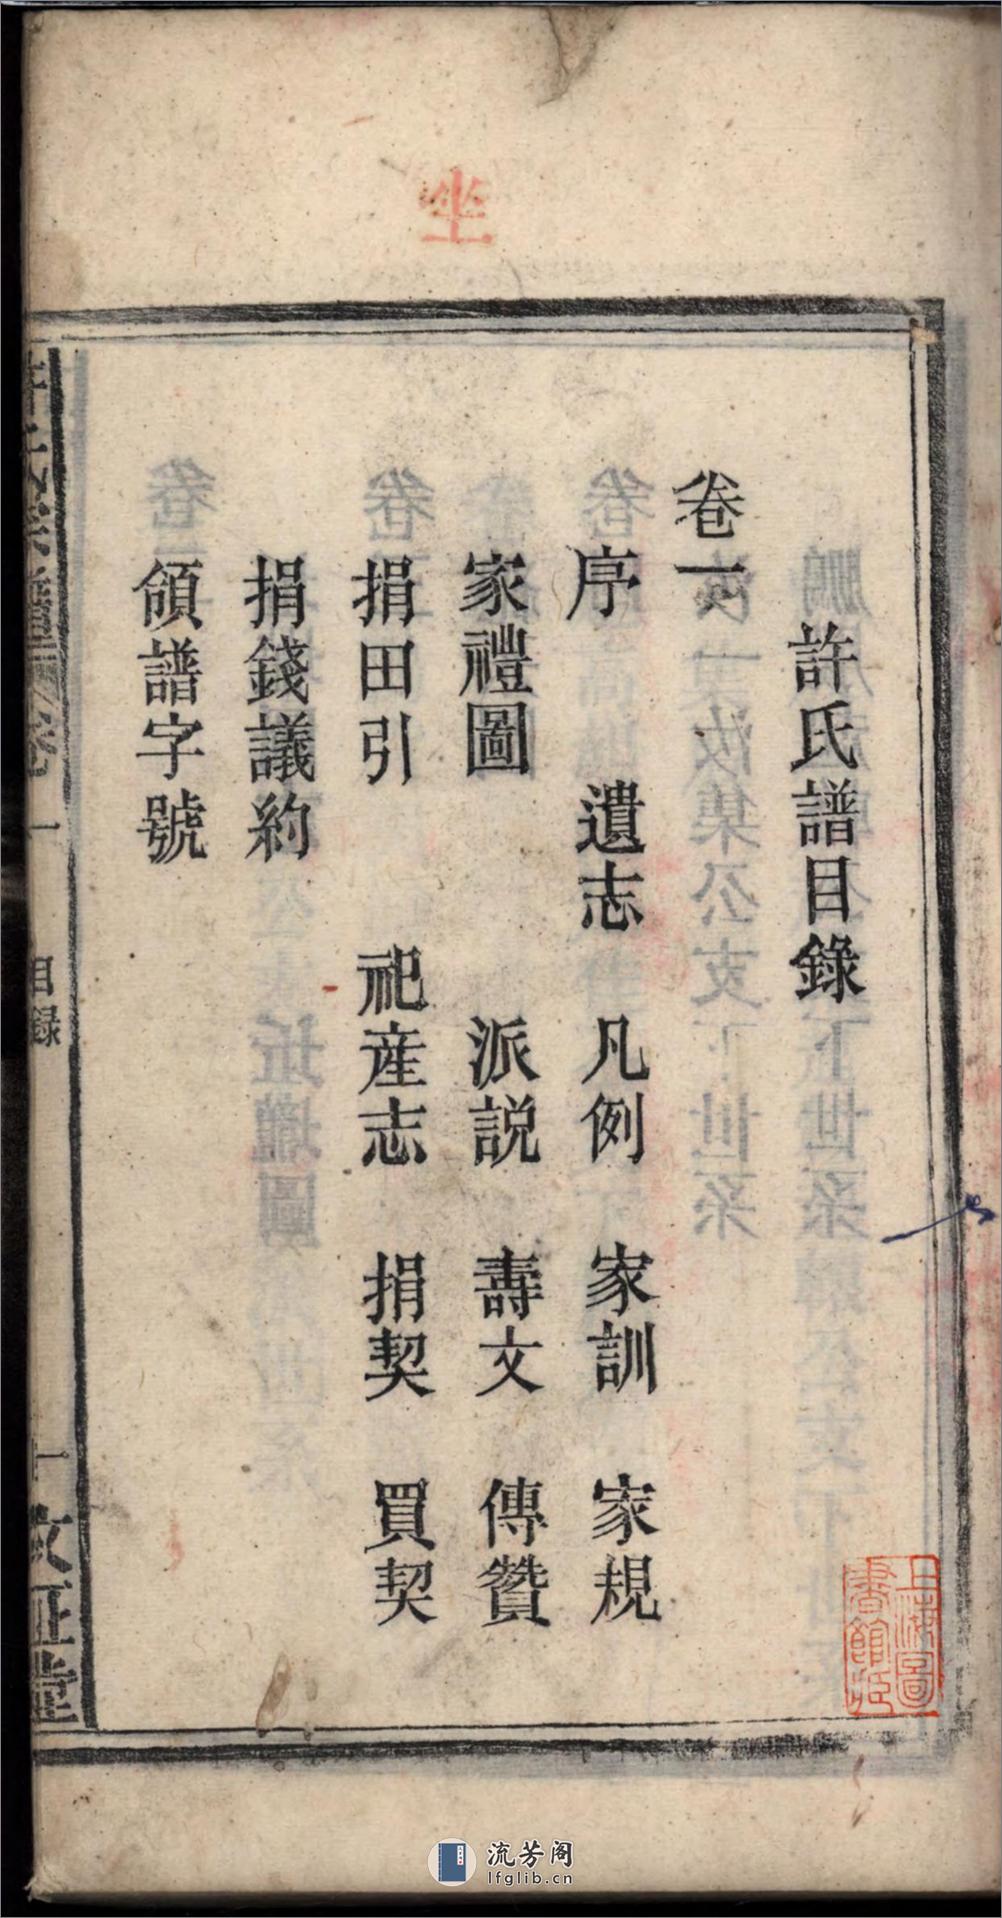 坐
許氏譜目錄
卷一
序 遺志 凡例 家訓 家規
家禮圖 派説 壽文 傳贊
捐田引 祀産志 捐契 買契
捐錢議約
領譜字號
卷一
目錄
一
敦

上海圖
書館藏
流芳阁
lfglib.cn